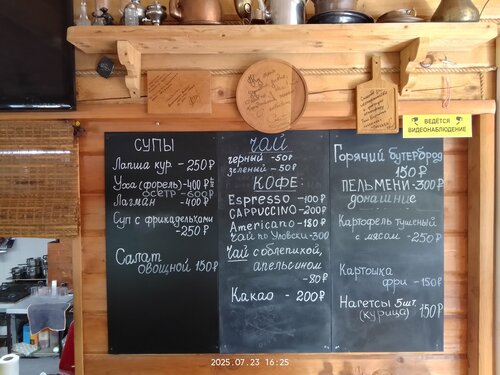 СУПЫ
Лапша кур. - 250₽
Уха (форель) - 400₽
осетр - 600₽
Лагман - 400₽
Суп с фрикадельками
- 250₽
Салат
овощной 150₽
ЧАЙ
черный - 50₽
зеленый - 50₽
КОФЕ:
Espresso - 100₽
CAPPUCCINO - 200₽
Americano - 180₽
чай по Уловски - 300
Чай с облепихой,
апельсином
- 80₽
Какао - 200₽
Горячий бутерброд
150₽
ПЕЛЬМЕНИ - 300₽
домашние
Картофель тушеный
с мясом - 250₽
Картошка
фри - 150₽
Нагетсы 5шт.
(курица) 150₽
ВЕДЁТСЯ
ВИДЕОНАБЛЮДЕНИЕ
2025.07.23 16:25